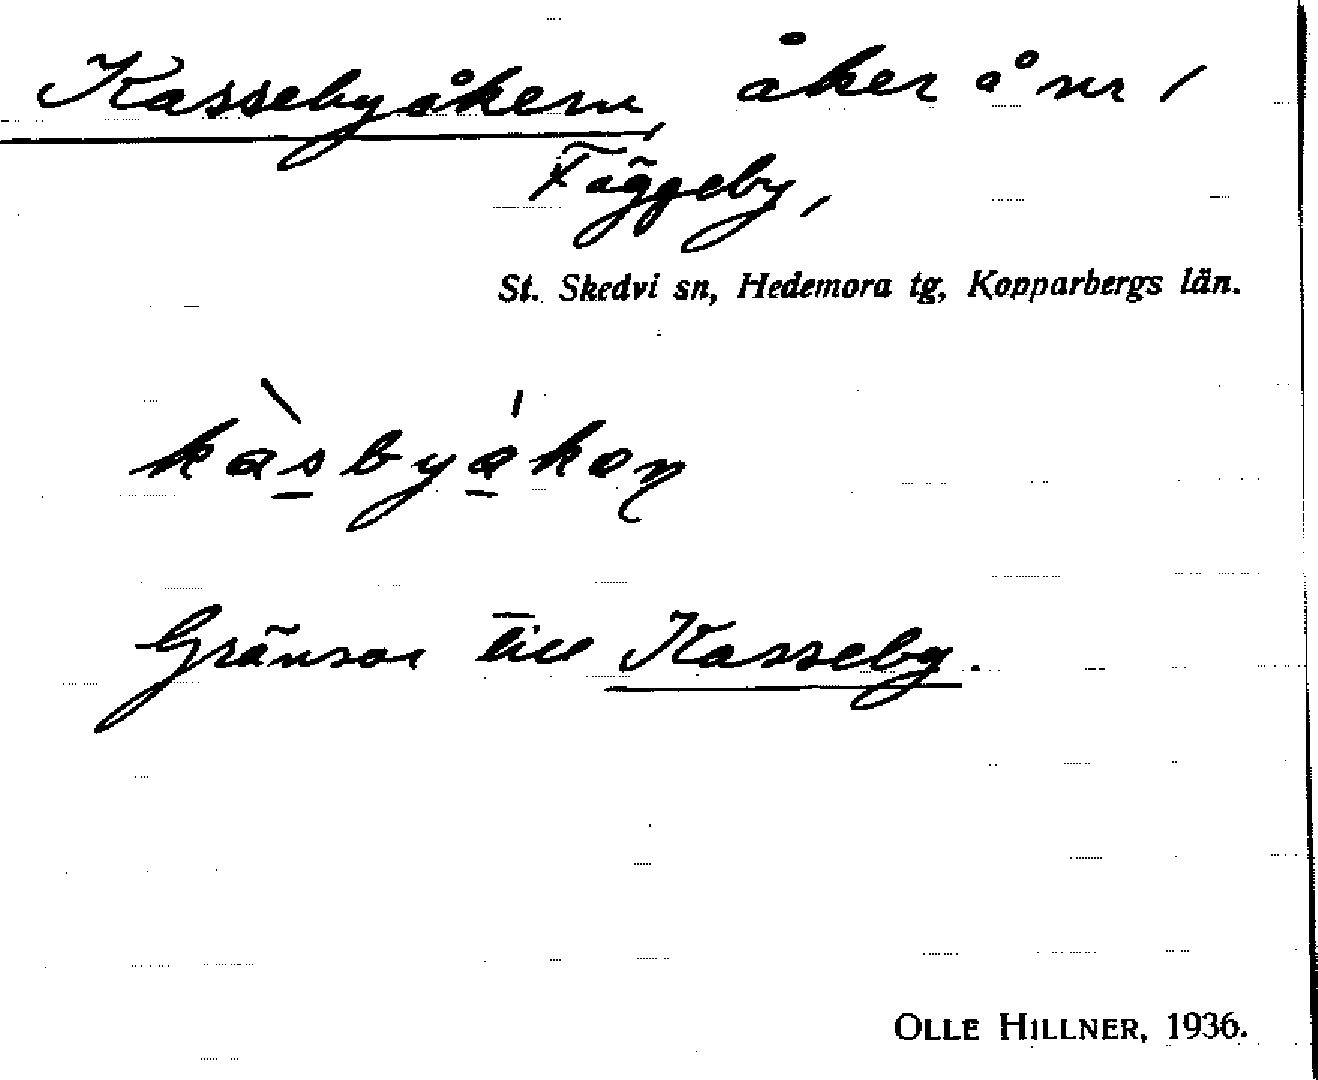 Kassebyåkern, åker å nr 1
Fäggeby,
St. Skedvi sn, Hedemora tg, Kopparbergs län.
kàsbyákoṇ
Gränsar till Kasseby.
OLLE HILLNER, 1936.